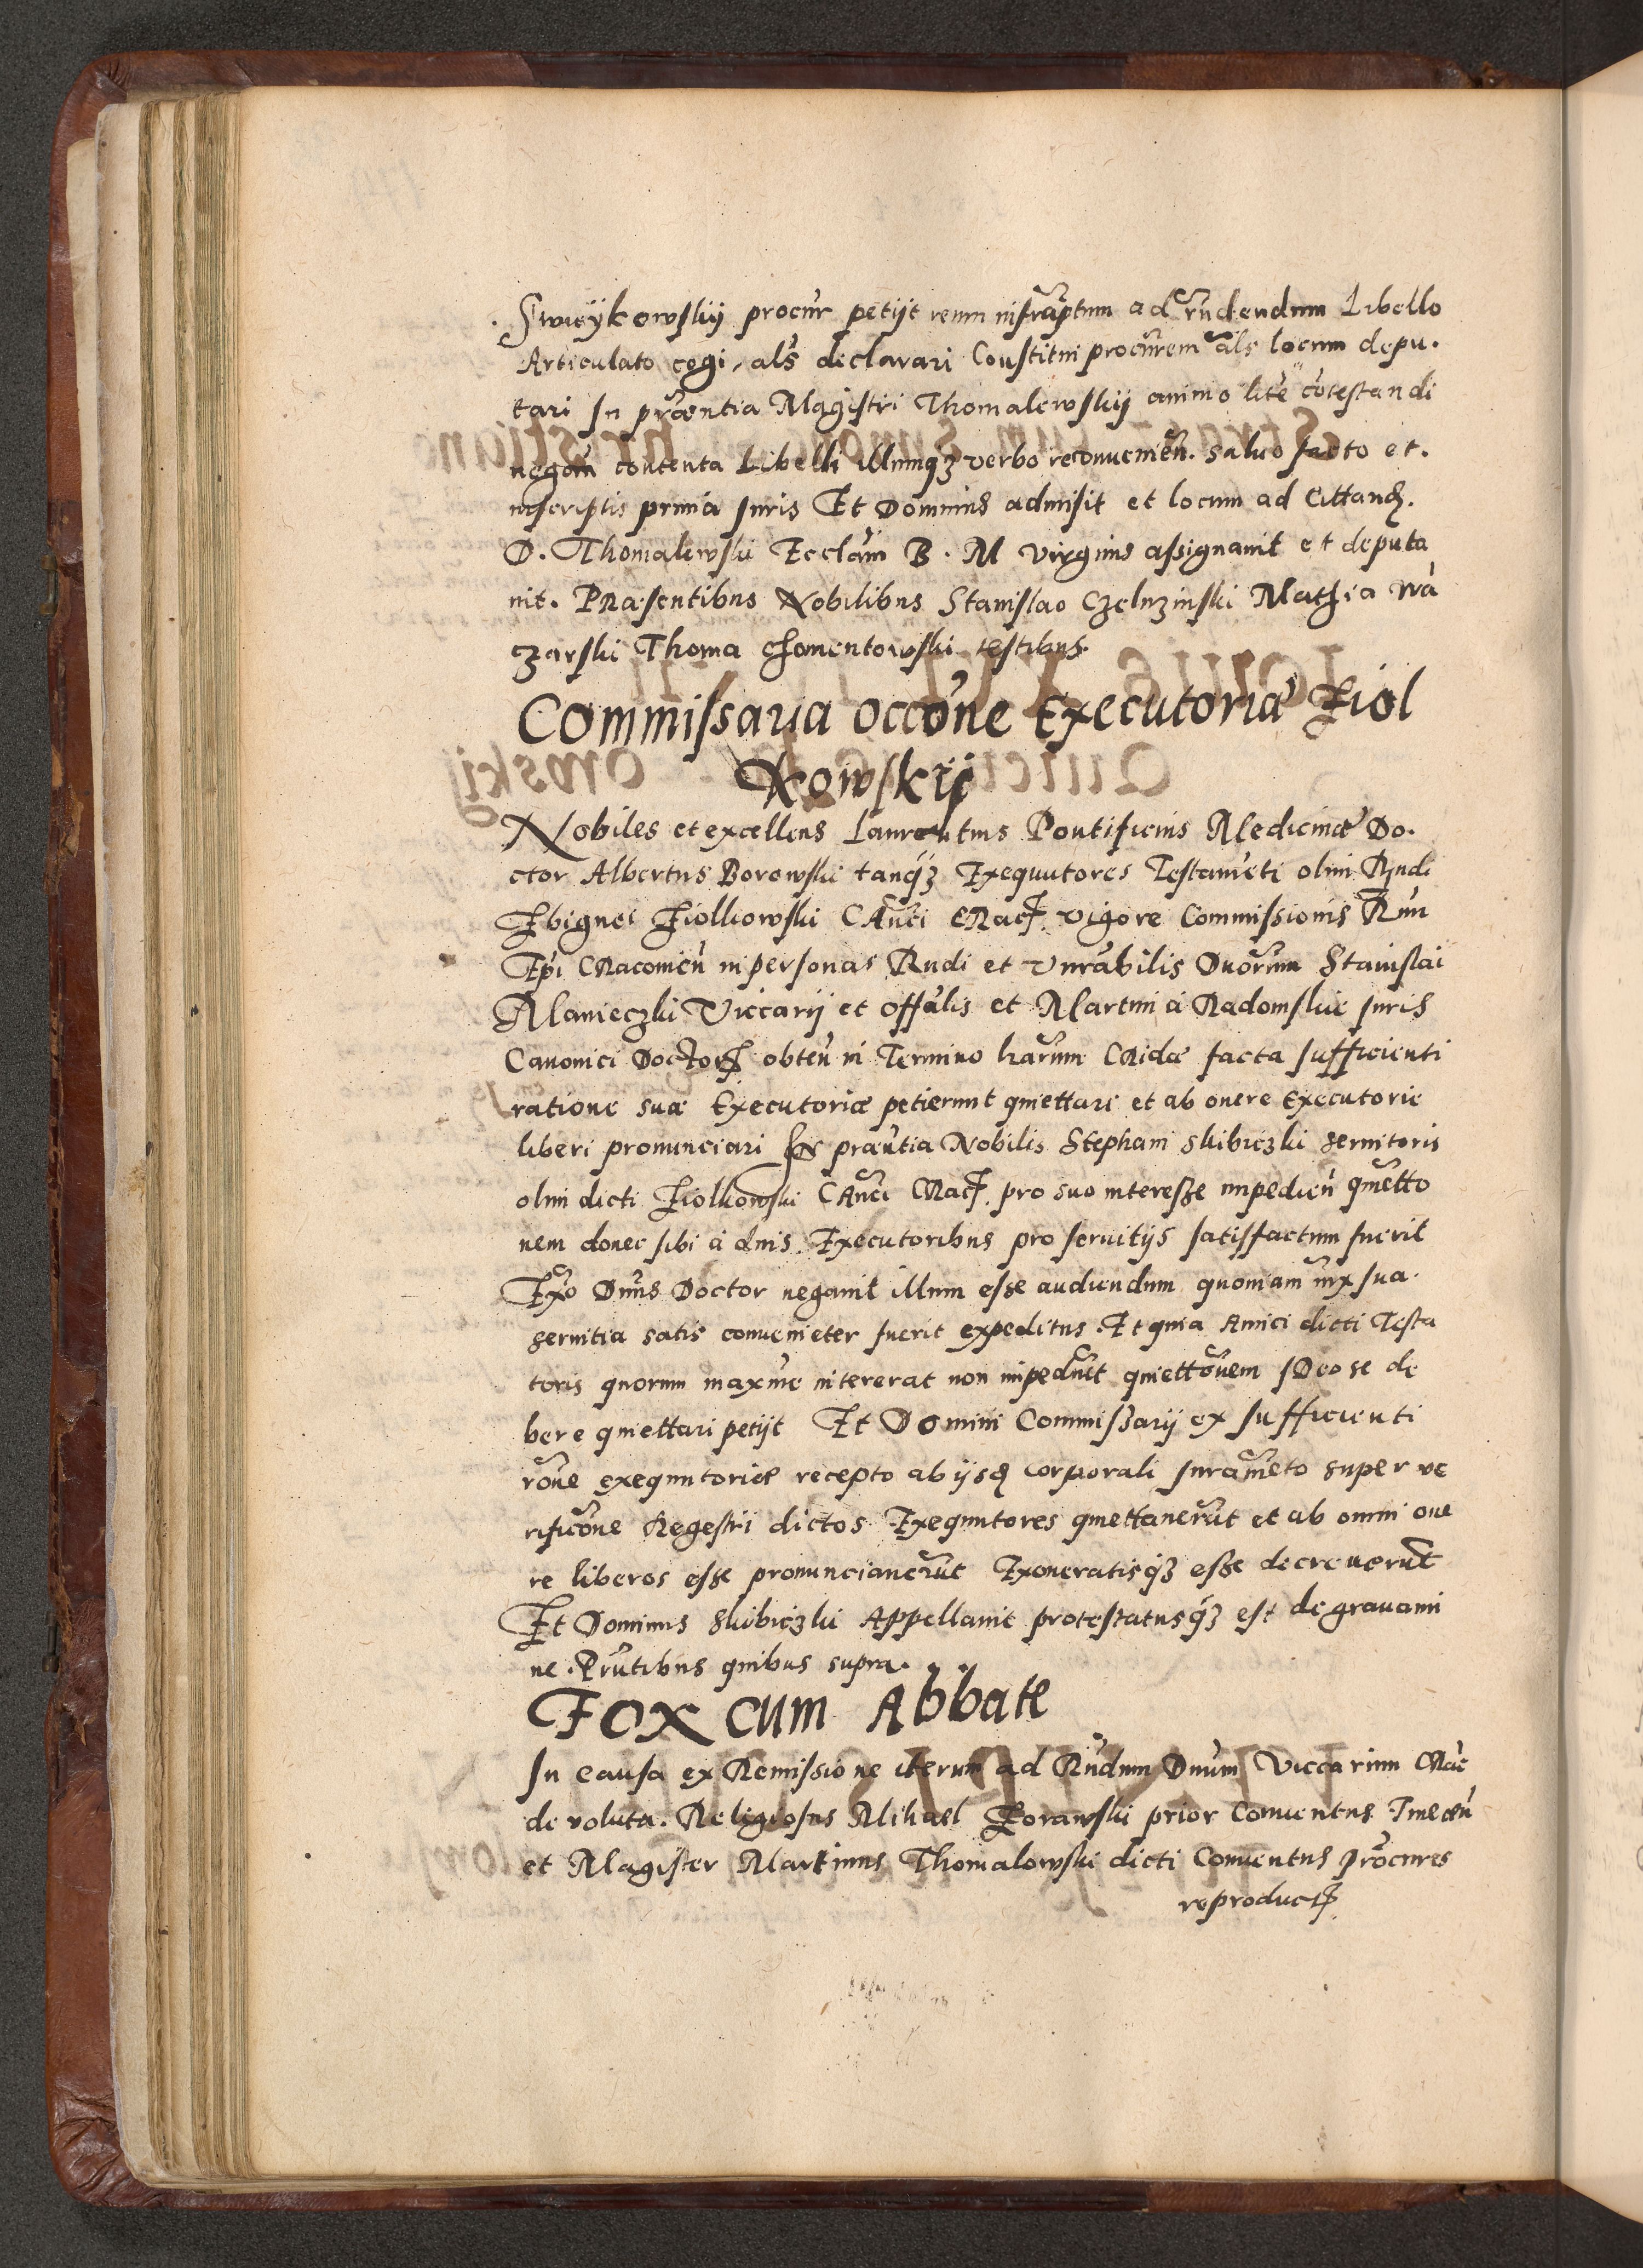 Swieykowskij procur petijt reum infrascptum ad rndendum Libello
Articulato cogi, als declarari Constitui procurem als locum depu-
tari In praentia Magistri Thomalewskij animo lite cotestandi
negan contenta Libelli illumqz verbo reconuenien. saluo facto et.
inscriptis primia Iuris Et Dominus admisit et locum ad Cittand.
D. Thomalewski Ecclam B. M Virginis assignauit et deputa
uit. Praesentibus Nobilibus Stanislao Czeluzinski Mathia Wa
czarski Thoma Chomentowski testibus.
Commissaria occone Executoriae Fiol
Kowskij
Nobiles et excellens Laurentius Pontificius Medicinae Do-
ctor Albertus Borowski tanqz Exequutores Testameti olim Rndi
Sbignei Fiolkowski CAnci CRac. vigore Commissionis Rmi
Epi CRacouien in personas Rndi et Vnrabilis Dnorum Stanislai
Manieczki Viccarij et offalis et Martini a Radomskie Iuris
Canonici Doctor obten in Termino harum CRidae facta sufficienti
ratione suae Executoriae petierunt quiettari et ab onere Executorie
liberi pronunciari In praentia Nobilis Stephani Skibiczki seruitoris
olim dicti Fiolkowski CAnci CRac. pro suo interesse impedien quietto
nem donec sibi a dnis Executoribus pro seruitijs satisfactum fuerit
Exo Dnus Doctor negauit illum esse audiendum quoniam iux sua
seruitia satis conuenieter fuerit expeditus. Et quia Amici dicti Testa
toris quorum maxime intererat non impediut quiettonem IDeo se de
bere quiettari petijt Et Domini Commissarij ex sufficienti
rone exequutoriae recepto ab ijsd corporali Iurameto super ve
rificone Regestri dictos Exequutores quiettauerut et ab omni one
re liberos esse pronunciauerut Exoneratisqz esse decreuerunt
Et Dominus Skibiczki Appellauit protestatusqz est de grauami
ne. Prntibus quibus supra.
Fox cum Abbate
In causa ex Remissione iterum ad Rndum Dnum Viccarium CRac
deuoluta. Religiosus Mihael Zorawski prior Conuentus Tinecen
et Magister Martinus Thomalowski dicti Conuentus procures
reproduct